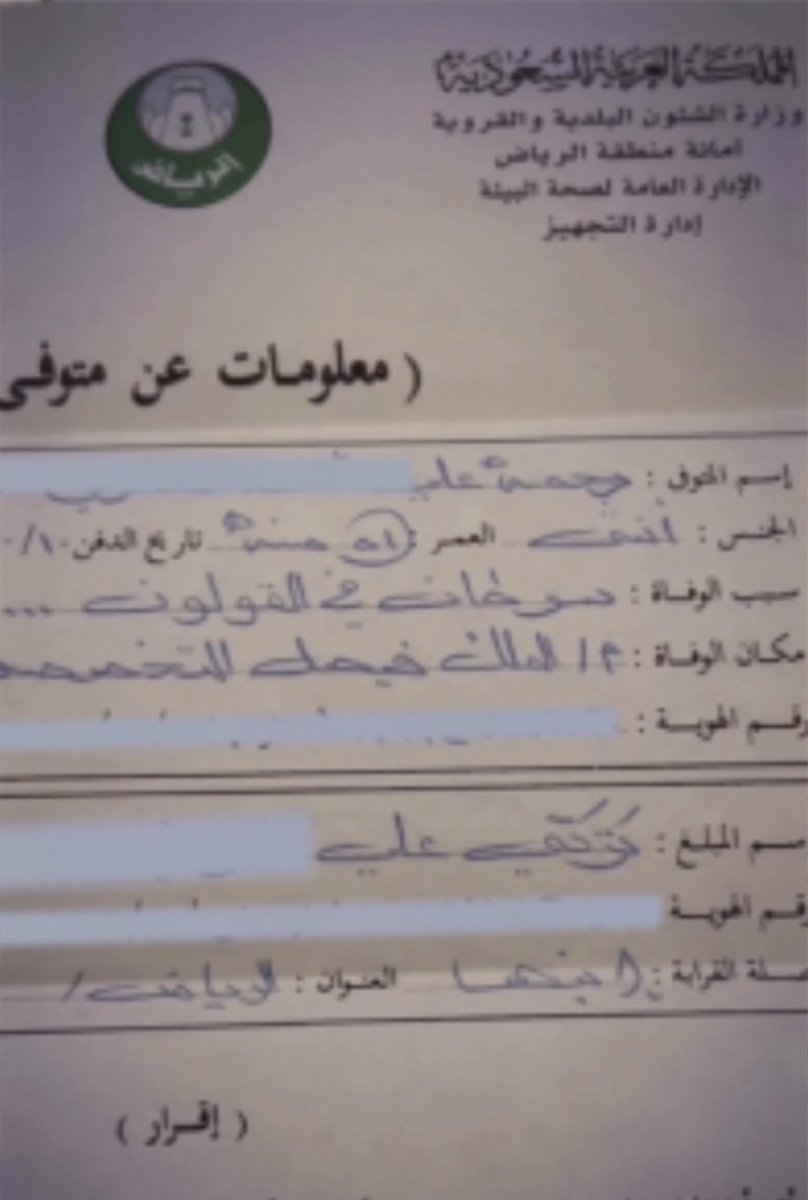 المملكة العربية السعودية
وزارة الشئون البلدية والقروية
أمانة منطقة الرياض
الإدارة العامة لصحة البيئة
إدارة التجهيز
الرياض
( معلومات عن متوفى
إسم المتوفى : علي
الجنس : أنثى العمر : ٥١ سنة تاريخ الدفن ١٠/
سبب الوفاة : سرطان في القولون ...
مكان الوفاة : م/ الملك فيصل التخصصي
رقم الهوية :
سم المبلغ : تركي علي
رقم الهوية
صلة القرابة : ابنها العنوان : الرياض /
( إقرار )